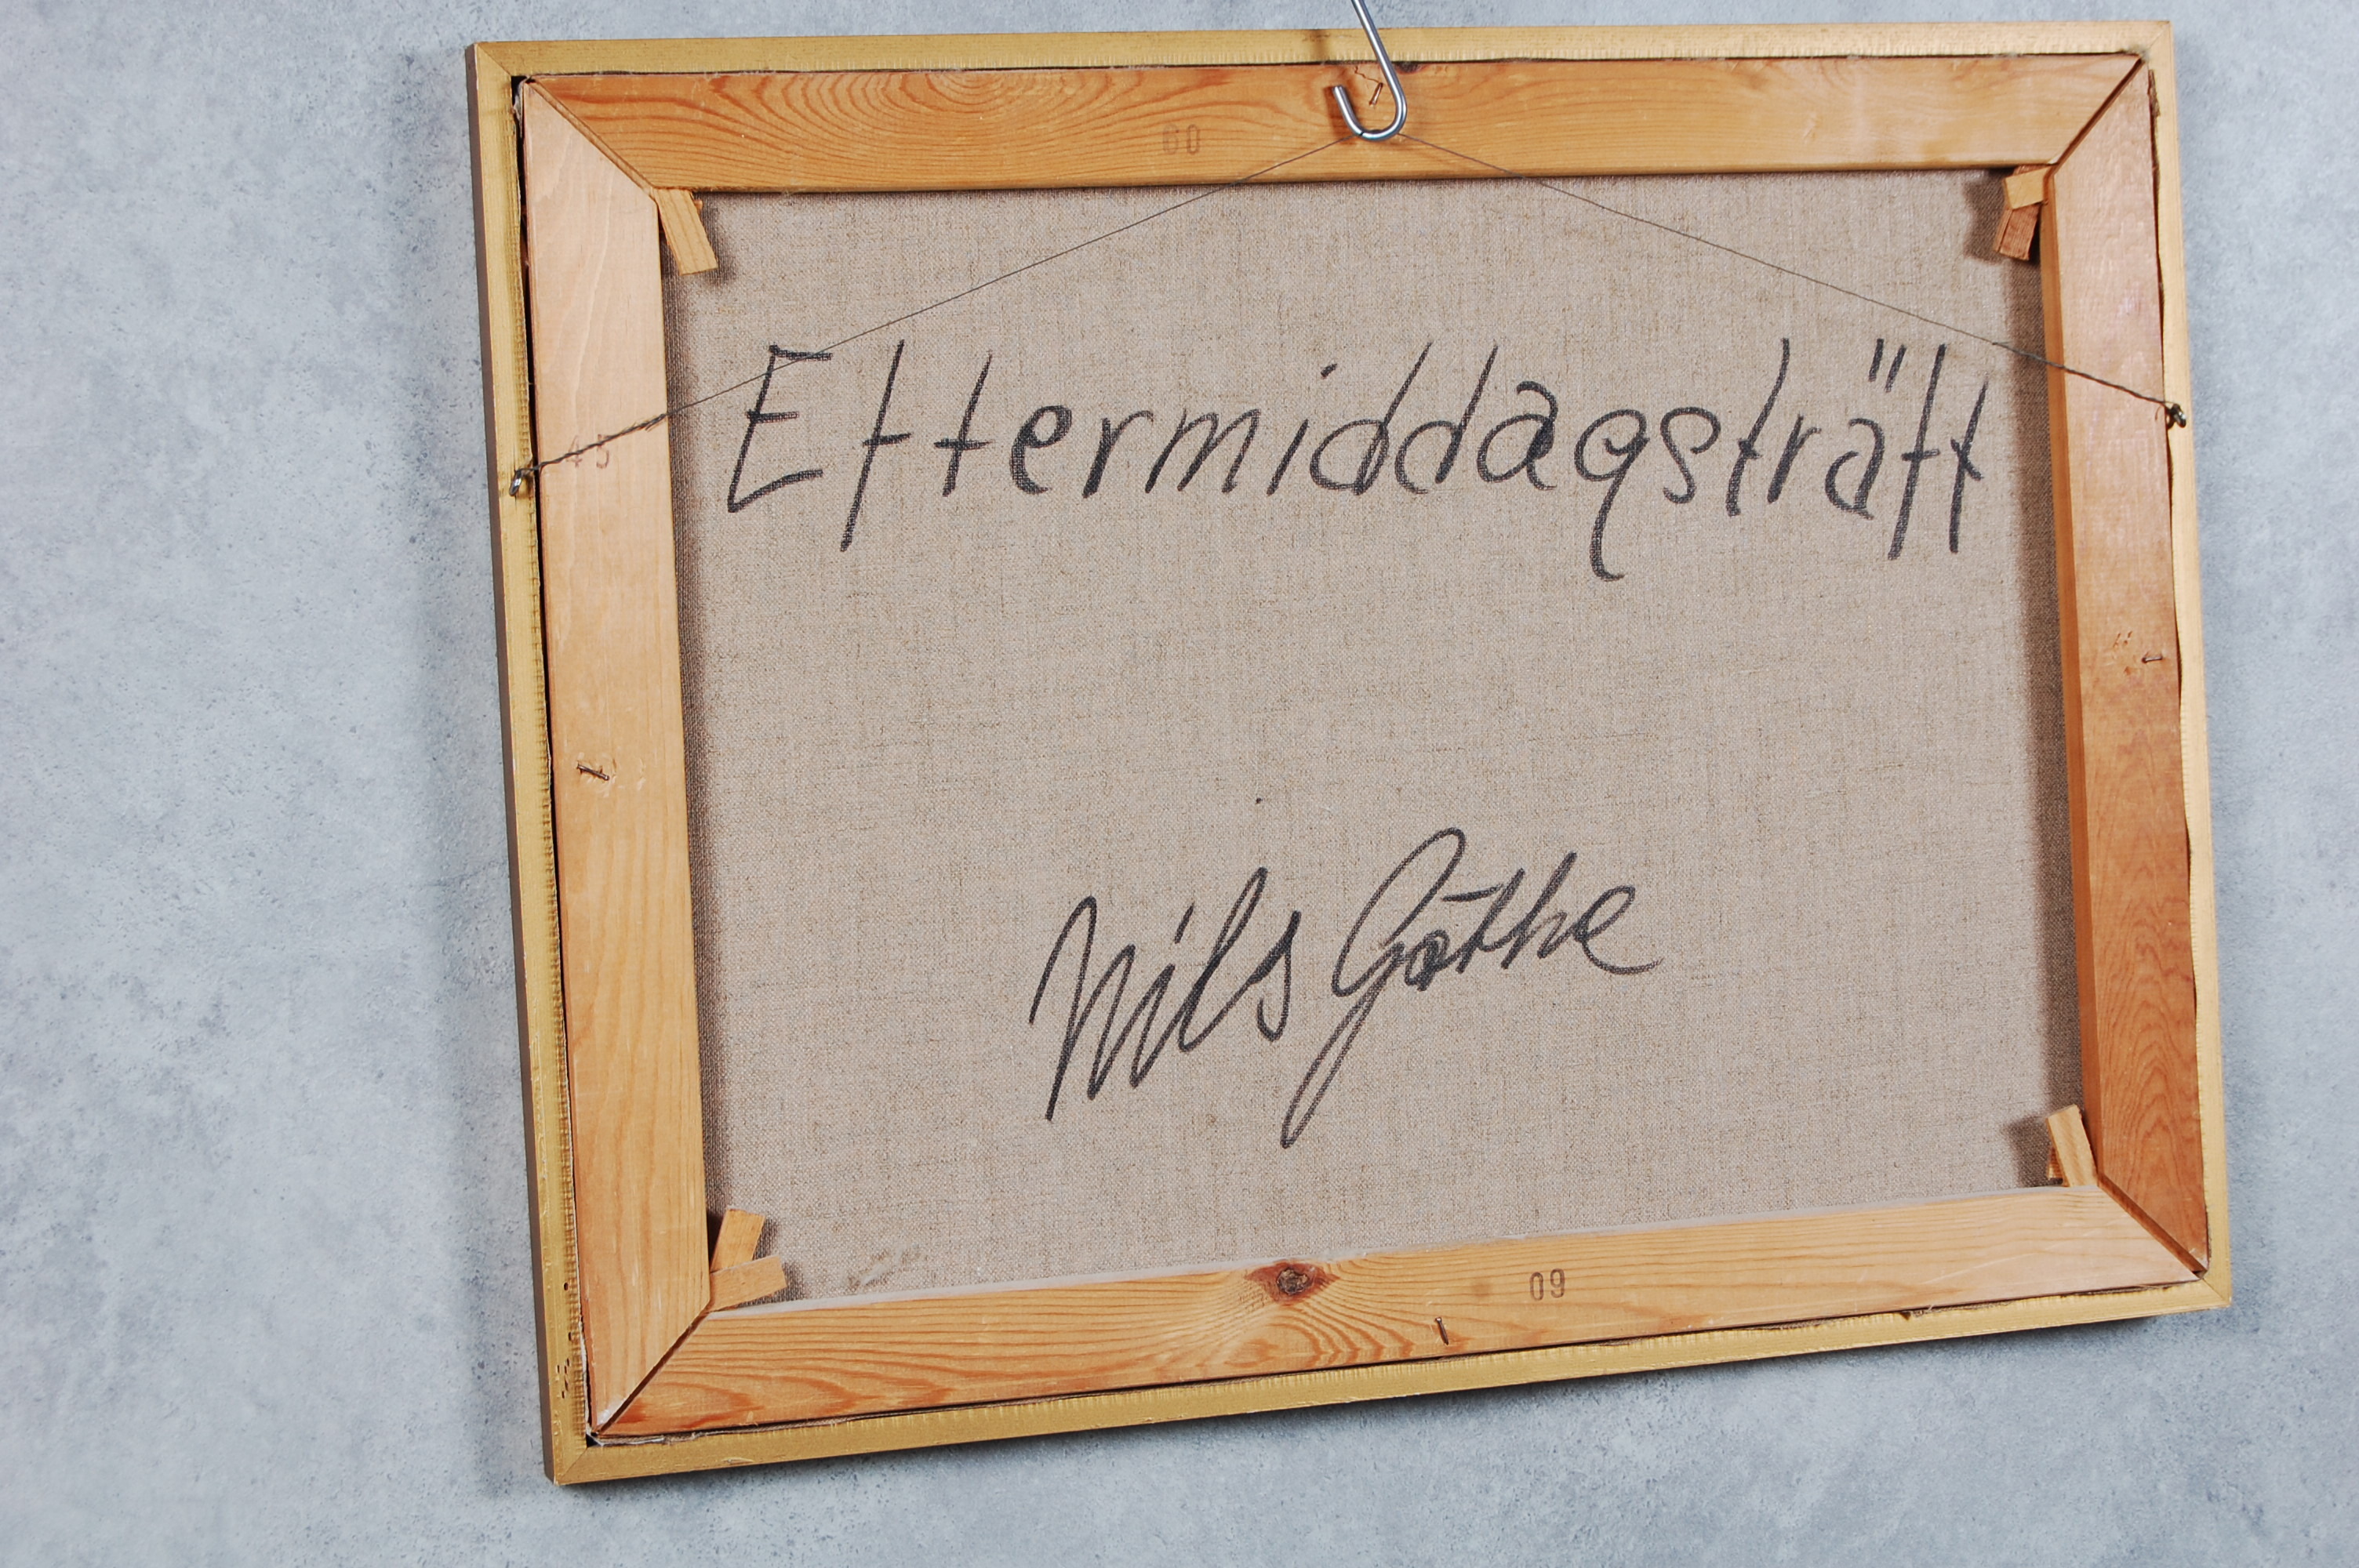 60
45
Eftermiddagsträff
Nils Göthe
60